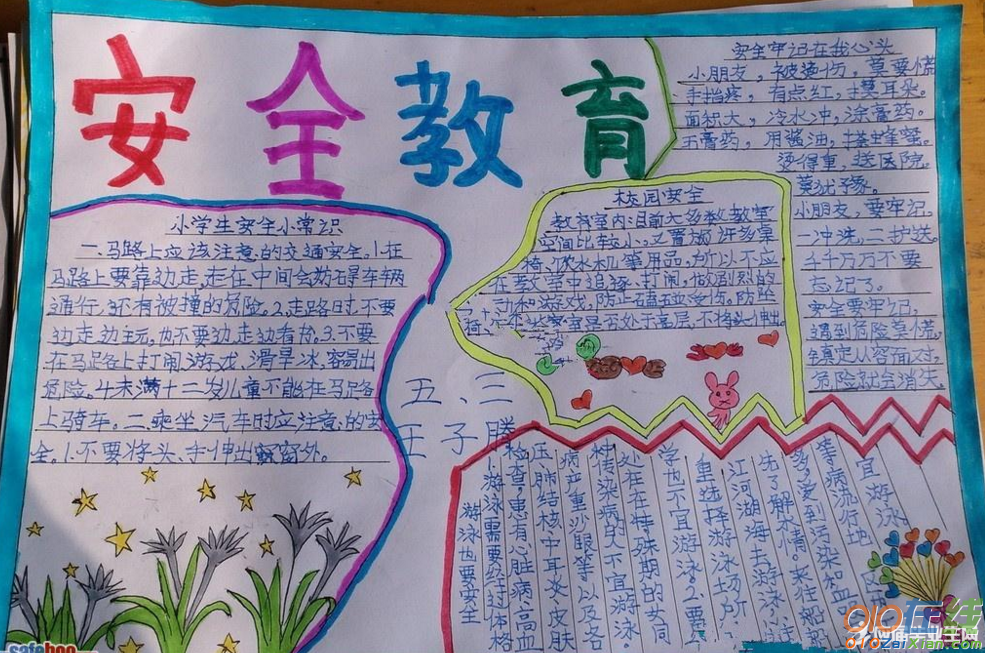 安全教育
小学生安全小常识
一.马路上应该注意的交通安全.1.在
马路上要靠边走,走在中间会妨碍车辆
通行,还有被撞的危险.2.走路时不要
边走边玩,也不要边走边看书.3.不要
在马路上打闹、游戏、滑旱冰,容易出
危险.4.未满十二岁儿童不能在马路
上骑车。二.乘坐汽车时应注意的安
全.1.不要将头、手伸出窗外。
五、三
王子腾
校园安全
教室内:目前大多数教室
空间比较小,又置放许多桌
椅、饮水机等用品,所以不应
在教室中追逐、打闹,做剧烈的
运动和游戏,防止磕碰受伤。防
不将头伸出
安全牢记在我心头
小朋友,被烫伤,莫要慌
手指疼,有点红,摸耳朵。
面积大,冷水冲,涂膏药。
无膏药,用酱油,搽蜂蜜。
烫得重,送医院。
莫犹豫。
小朋友,要牢记,
一冲洗,二护送。
千千万万不要
忘记了。
安全要牢记,
遇到危险莫慌,
镇定从容面对,
危险就会消失。
游泳也要安全
1.游泳需要经过体格
检查,患有心脏病、高血
压、肺结核、中耳炎、皮肤
病、严重沙眼等以及各
种传染病的人不宜游泳。
处在在特殊期的女同
学也不宜游泳。2.要
重选择游泳场所,
江河湖海去游泳,
先了解水情。来往船
多,受到污染和血
病流行地区
宜游泳
safehoo
010在线
010zaixian.com
应届毕业生网